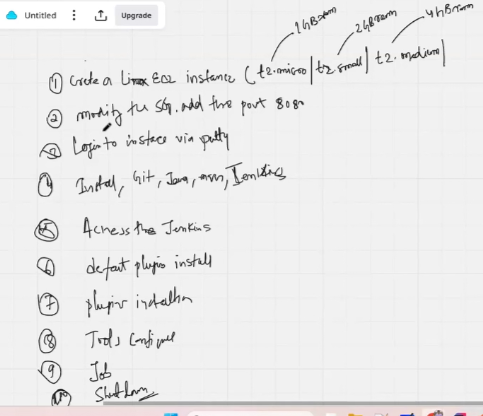 Untitled
Upgrade
1GB Ram 2GB Ram 4GB Ram
① Create a Linux EC2 instance (t2.micro | t2.small | t2.medium |
② modify the SG. add the port 8080
③ Login to instace via putty
④ Install, Git, Java, mvn, Jenkins
⑤ Access the Jenkins
⑥ defaut plugin install
⑦ plugins installation
⑧ Tools Configure
⑨ Job
⑩ Shutdown